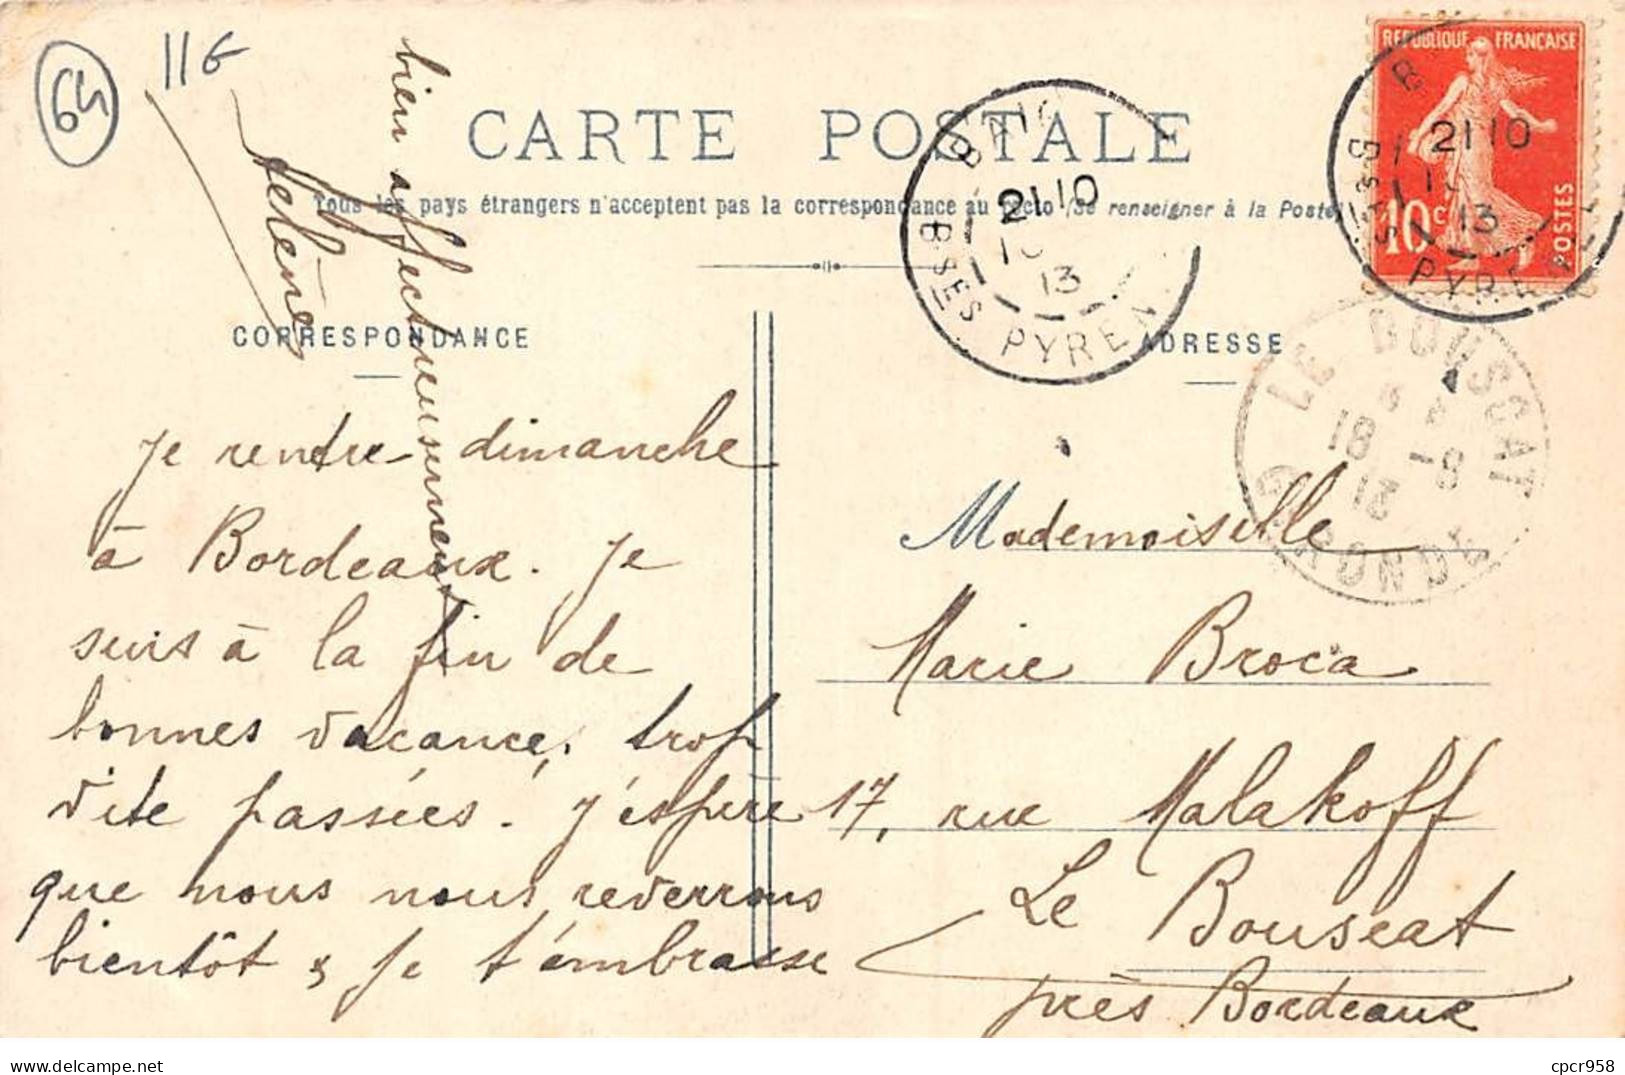 64
116
CARTE POSTALE
Tous les pays étrangers n'acceptent pas la correspondance au recto (Se renseigner à la Poste)
CORRESPONDANCE
ADRESSE
REPUBLIQUE FRANÇAISE
10c
POSTES
2110
13
BSES PYREN
2110
13
BSES PYREN
LE BOUSCAT
18
13
GIRONDE
Je rentre dimanche
à Bordeaux. Je
suis à la fin de
bonnes vacance, trop
vite passées. J'espère
que nous nous reverrons
bientôt & je t'embrasse
bien affectueusement
Hélène
Mademoiselle
Marie Broca
17, rue Malakoff
Le Bouscat
près Bordeaux
cpcr958